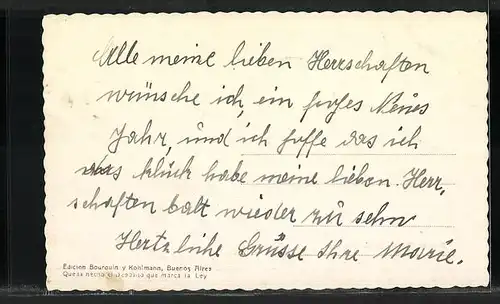 Alle meine lieben Herrschaften
wünsche ich, ein froses Neues
Jahr, und ich hoffe das ich
das klück habe meine lieben Herr,
schaften balt wieder zü sehn
Hertzliche Grüsse Ihre Marie.
Edicion Bourquin y Kohlmann, Buenos Aires
Queda hecho el depósito que marca la Ley